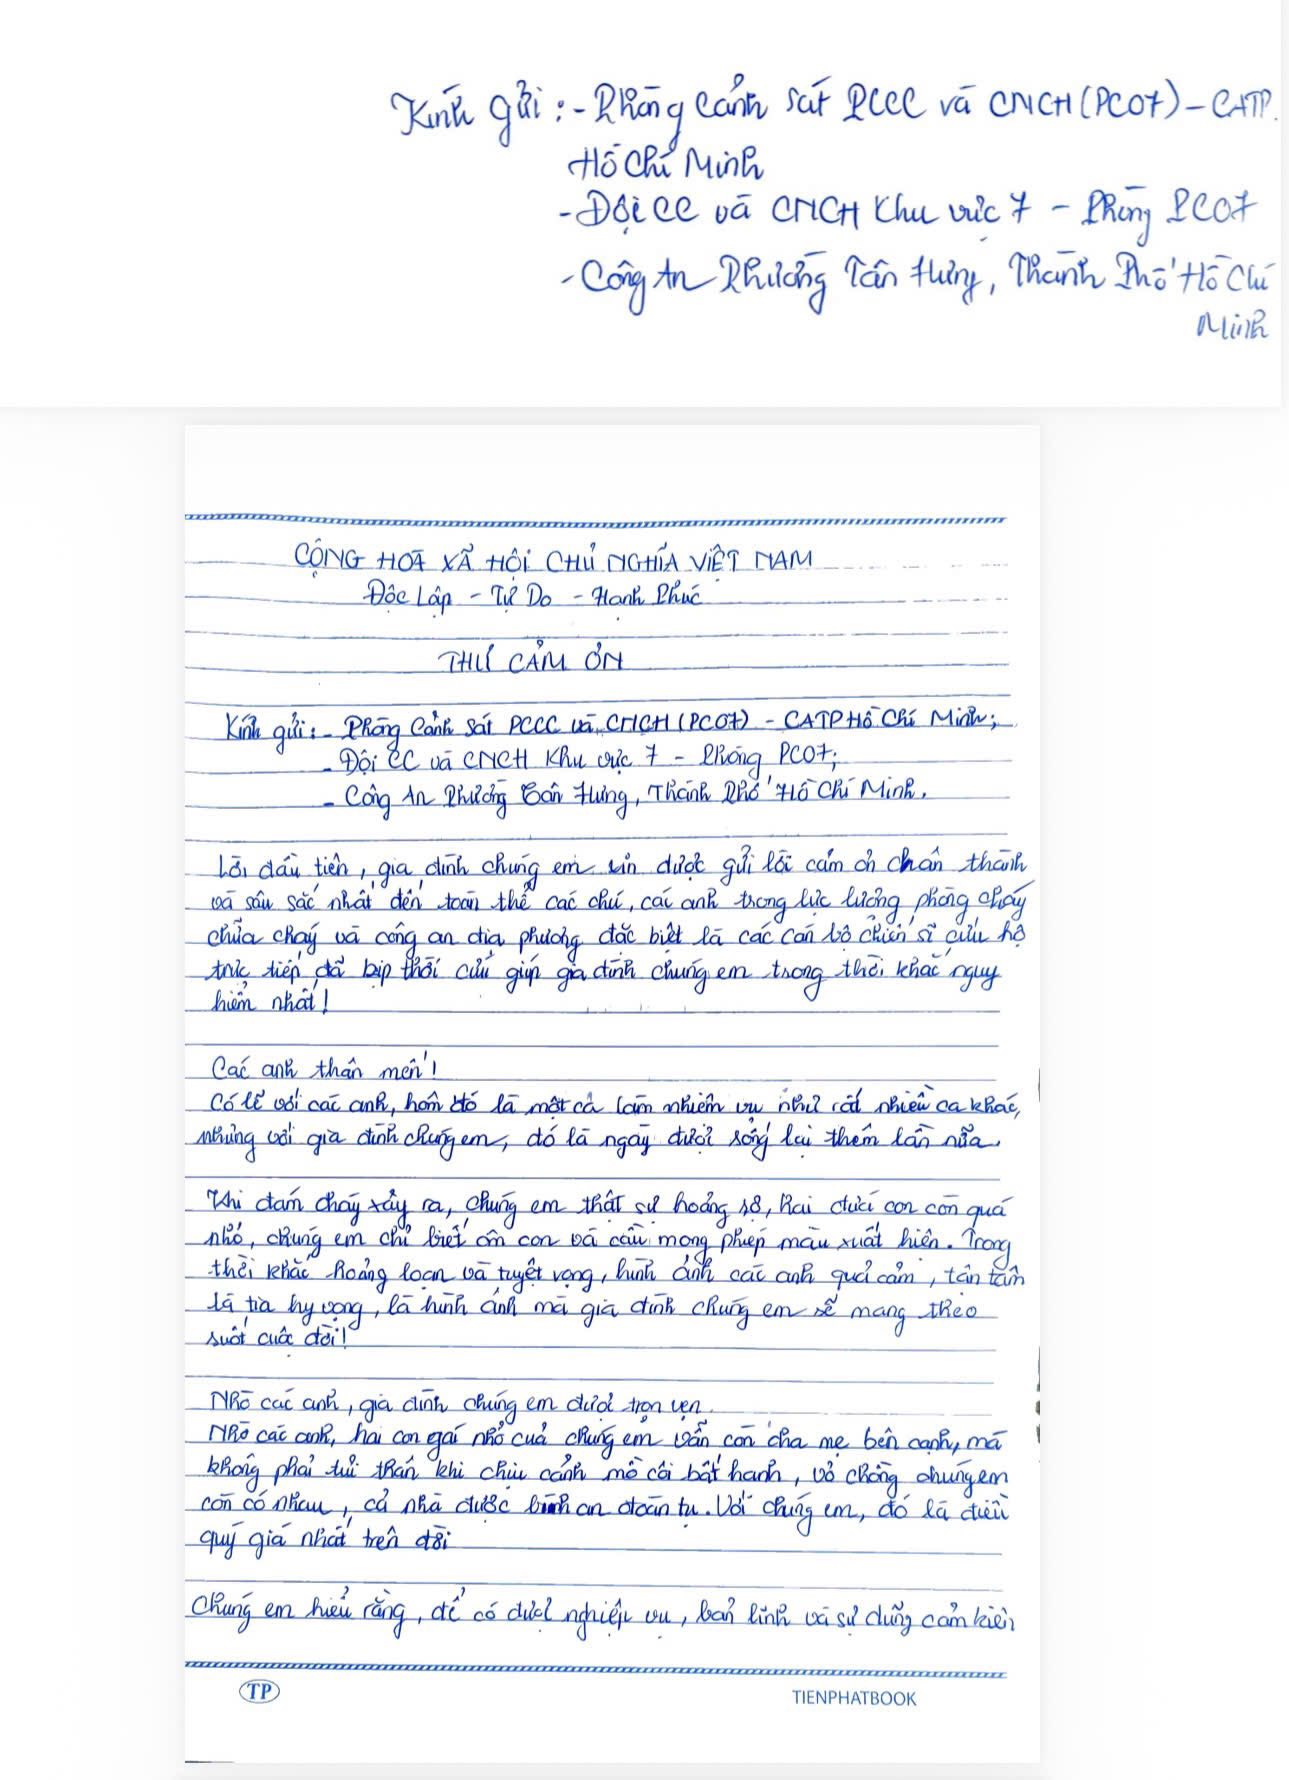 Kính gửi: - Phòng Cảnh sát PCCC và CNCH (PC07) - CATP.
Hồ Chí Minh
- Đội CC và CNCH Khu vực 7 - Phòng PC07
- Công An Phường Tân Hưng, Thành Phố Hồ Chí
Minh
CỘNG HOÀ XÃ HỘI CHỦ NGHĨA VIỆT NAM
Độc Lập - Tự Do - Hạnh Phúc
THƯ CẢM ƠN
Kính gửi: - Phòng Cảnh Sát PCCC và CNCH (PC07) - CATP Hồ Chí Minh;
- Đội CC và CNCH Khu vực 7 - Phòng PC07;
- Công An Phường Tân Hưng, Thành Phố Hồ Chí Minh.
Lời đầu tiên, gia đình chúng em xin được gửi lời cảm ơn chân thành
và sâu sắc nhất đến toàn thể các chú, các anh trong lực lượng phòng cháy
chữa cháy và công an địa phương đặc biệt là các cán bộ chiến sĩ cứu hộ
trực tiếp đã kịp thời cứu giúp gia đình chúng em trong thời khắc nguy
hiểm nhất!
Các anh thân mến!
Có lẽ với các anh, hôm đó là một ca làm nhiệm vụ như rất nhiều ca khác,
nhưng với gia đình chúng em, đó là ngày được sống lại thêm lần nữa.
Khi đám cháy xảy ra, chúng em thật sự hoảng sợ, hai đứa con còn quá
nhỏ, chúng em chỉ biết ôm con và cầu mong phép màu xuất hiện. Trong
thời khắc hoảng loạn và tuyệt vọng, hình ảnh các anh quả cảm, tận tâm
là tia hy vọng, là hình ảnh mà gia đình chúng em sẽ mang theo
suốt cuộc đời!
Nhờ các anh, gia đình chúng em được trọn vẹn.
Nhờ các anh, hai con gái nhỏ của chúng em vẫn còn cha mẹ bên cạnh, mà
không phải tủi thân khi chịu cảnh mồ côi bất hạnh, vợ chồng chúng em
còn có nhau, cả nhà được bình an đoàn tụ. Với chúng em, đó là điều
quý giá nhất trên đời
Chúng em hiểu rằng, để có được nghiệp vụ, bản lĩnh và sự dũng cảm kiên
TP
TIENPHATBOOK